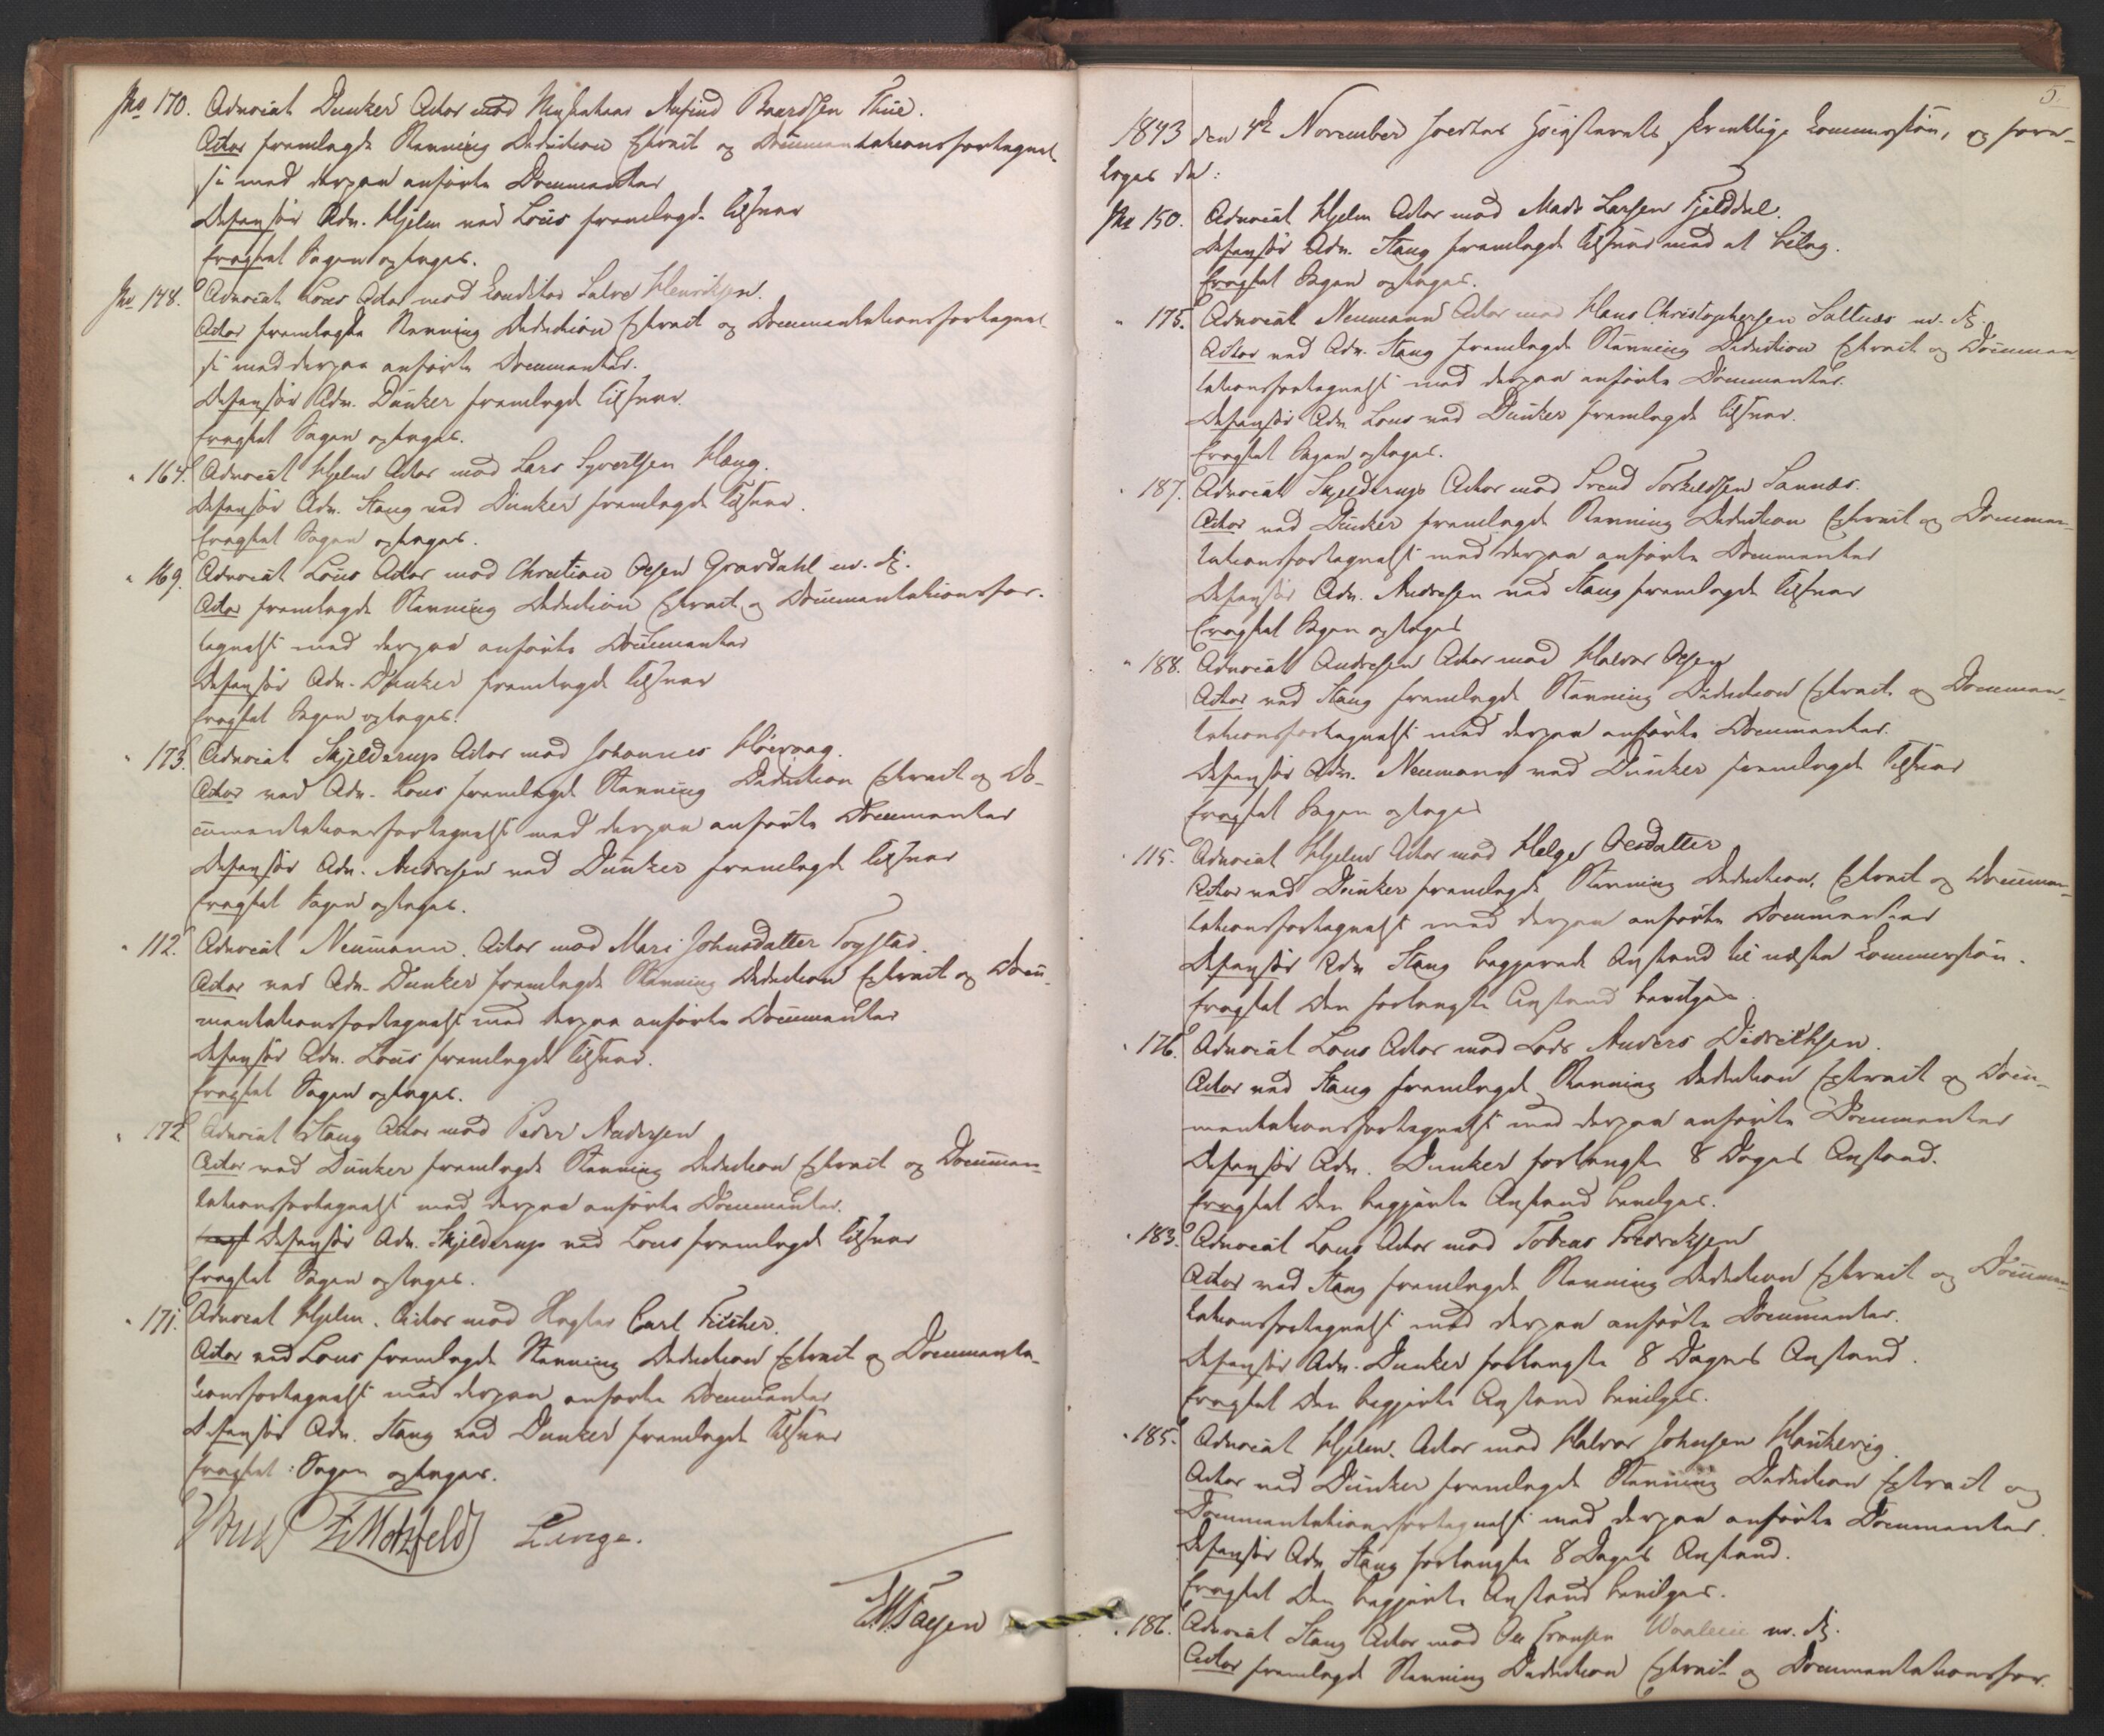 No 170. Advocat Dunker Actor mod Anfind Baardsen Thue.
Actor fremlagde Stævning Deduction Extract og Documentationsfortegnel-
se med derpaa anførte Documenter
Defensor Adv. Hjelm ved Lous fremlagde Tilsvar
Eragtet Sagen optages.
No 148. Advocat Lous Actor mod Conditor Salve Henriksen.
Actor fremlagde Stævning Deduction Extract og Documentationsfortegnel-
se med derpaa anførte Documenter.
Defensor Adv. Dunker fremlagde Tilsvar.
Eragtet Sagen optages.
" 164. Advocat Hjelm Actor mod Lars Syvertsen Haug.
Defensor Adv. Stang ved Dunker fremlagde Tilsvar.
Eragtet Sagen optages.
" 169. Advocat Lous Actor mod Christian Olsen Gravdahl m. fl.
Actor fremlagde Stævning Deduction Extract og Documentationsfor-
tegnelse med derpaa anførte Documenter
Defensor Adv. Dunker fremlagde Tilsvar
Eragtet Sagen optages.
" 173. Advocat Skjelderup Actor mod Johannes Høivaag.
Actor ved Adv. Lous fremlagde Stævning Deduction Extract og Do-
cumentationsfortegnelse med derpaa anførte Documenter
Defensor Adv. Andresen ved Dunker fremlagde Tilsvar
Eragtet Sagen optages.
" 112. Advocat Neumann. Actor mod Mari Johnsdatter Togstad.
Actor ved Adv. Dunker fremlagde Stævning Deduction Extract og Docu-
mentationsfortegnelse med derpaa anførte Documenter
Defensor Adv. Lous fremlagde Tilsvar.
Eragtet Sagen optages.
" 172 Advocat Stang Actor mod Peder Andersen
Actor ved Dunker fremlagde Stævning Deduction Extract og Documen-
tationsfortegnelse med derpaa anførte Documenter.
Defensor Adv. Skjelderup ved Lous fremlagde Tilsvar
Eragtet Sagen optages.
" 171. Advocat Hjelm. Actor mod Carl Fischer.
Actor ved Lous fremlagde Stævning Deduction Extract og Documenta-
tionsfortegnelse med derpaa anførte Documenter
Defensor Adv. Stang ved Dunker fremlagde Tilsvar
Eragtet: Sagen optages.
Motzfeldt
5.
1843 den 4de November holdtes Høiesterets skriftlige Commission, og fore-
toges da:
No 150. Advocat Hjelm Actor mod Mads Larsen Fjelddal.
Defensor Adv. Stang fremlagde Tilsvar med et Bilag.
Eragtet Sagen optages.
" 175. Advocat Neumann Actor mod Hans Christophersen Saltnæs m. fl.
Actor ved Adv. Stang fremlagde Stævning Deduction Extract og Documen-
tationsfortegnelse med derpaa anførte Documenter.
Defensor Adv. Lous ved Dunker fremlagde Tilsvar.
Eragtet Sagen optages.
" 187. Advocat Skjelderup Actor mod Svend Torkildsen Sannæs.
Actor ved Dunker fremlagde Stævning Deduction Extract og Documen-
tationsfortegnelse med derpaa anførte Documenter
Defensor Adv. Andresen ved Stang fremlagde Tilsvar
Eragtet Sagen optages
" 188. Advocat Andresen Actor mod Halvor Olsen
Actor ved Stang fremlagde Stævning Deduction Extract og Documen-
tationsfortegnelse med derpaa anførte Documenter.
Defensor Adv. Neumann ved Dunker fremlagde Tilsvar
Eragtet Sagen optages
" 115. Advocat Hjelm Actor mod Helge Olesdatter
Actor ved Dunker fremlagde Stævning Deduction, Extract og Documen-
tationsfortegnelse med derpaa anførte Documenter
Defensor Adv. Stang begjerede Anstand til næste Commission.
Eragtet Den forlangte Anstand bevilges.
" 176. Advocat Lous Actor mod Lods Anders Didrichsen.
Actor ved Stang fremlagde Stævning Deduction Extract og Docu-
mentationsfortegnelse med derpaa anførte Documenter
Defensor Adv. Dunker forlangte 8 Dages Anstand.
Eragtet Den begjerte Anstand bevilges.
" 183. Advocat Lous Actor mod Tobias Fredriksen
Actor ved Stang fremlagde Stævning Deduction Extract og Documen-
tationsfortegnelse med derpaa anførte Documenter.
Defensor Adv. Dunker forlangte 8 Dages Anstand.
Eragtet Den begjerte Anstand bevilges.
" 185. Advocat Hjelm. Actor mod Halvor Johnsen Haukevig.
Actor ved Dunker fremlagde Stævning Deduction Extract og
Documentationsfortegnelse med derpaa anførte Documenter.
Defensor Adv. Stang forlangte 8 Dages Anstand.
Eragtet Den begjerte Anstand bevilges.
" 186. Advocat Stang Actor mod Ole Fransen m. fl.
Actor fremlagde Stævning Deduction Extract og Documentationsfor-